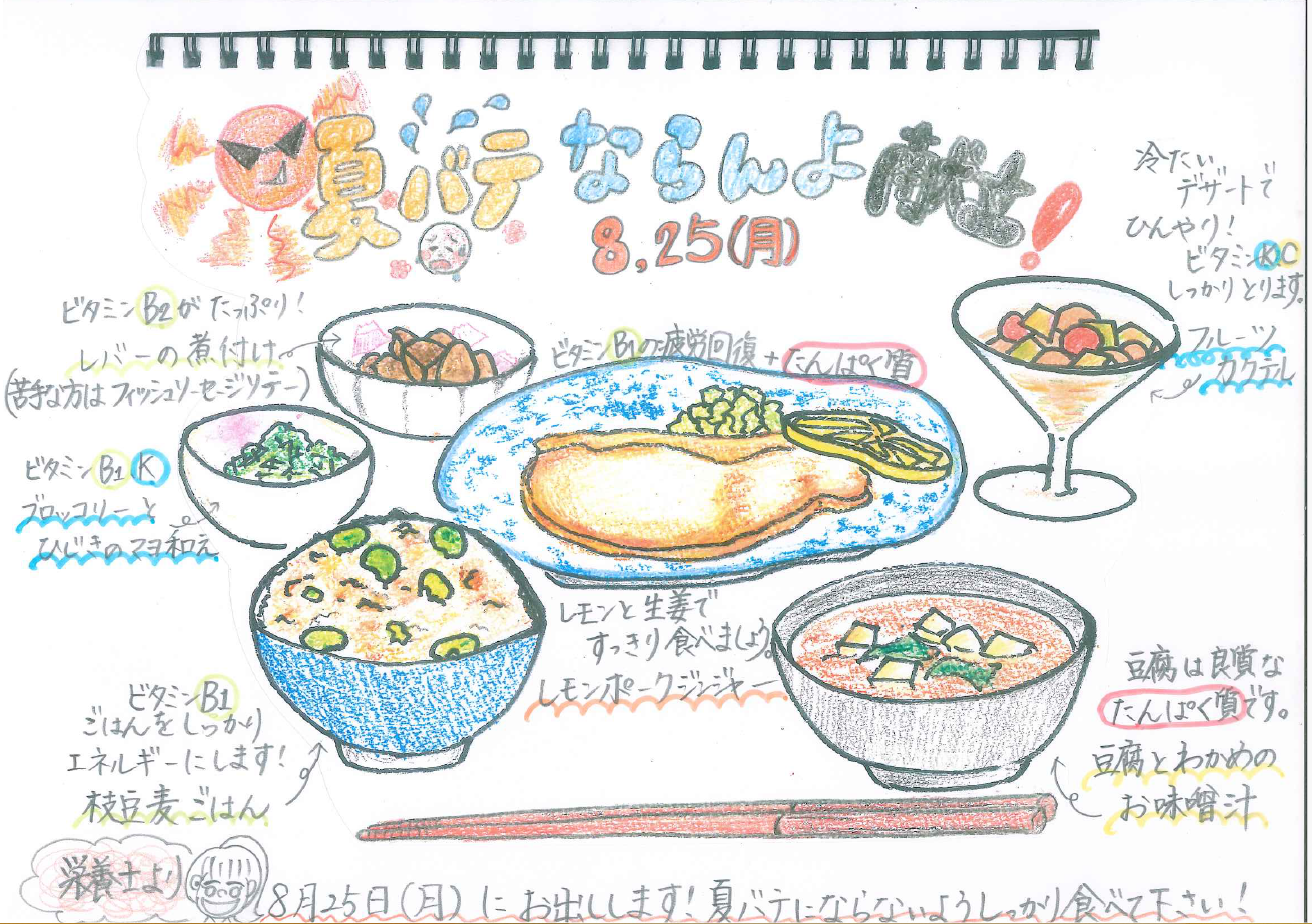 夏バテ ならんよ 献立!
8,25(月)
冷たい
デザートで
ひんやり!
ビタミンK.C
しっかりとります。
フルーツ
カクテル
ビタミンB2が たっぷり!
レバーの煮付け
(苦手な方はフィッシュソーセージソテー)
ビタミンB1の疲労回復+たんぱく質
ビタミン B1 K
ブロッコリーと
ひじきのマヨ和え
レモンと生姜で
すっきり食べましょう。
レモンポークジンジャー
ビタミンB1
ごはんをしっかり
エネルギーにします!
枝豆麦ごはん
豆腐は良質な
たんぱく質です。
豆腐とわかめの
お味噌汁
栄養士より
8月25日(月)にお出しします!夏バテにならないようしっかり食べて下さい!